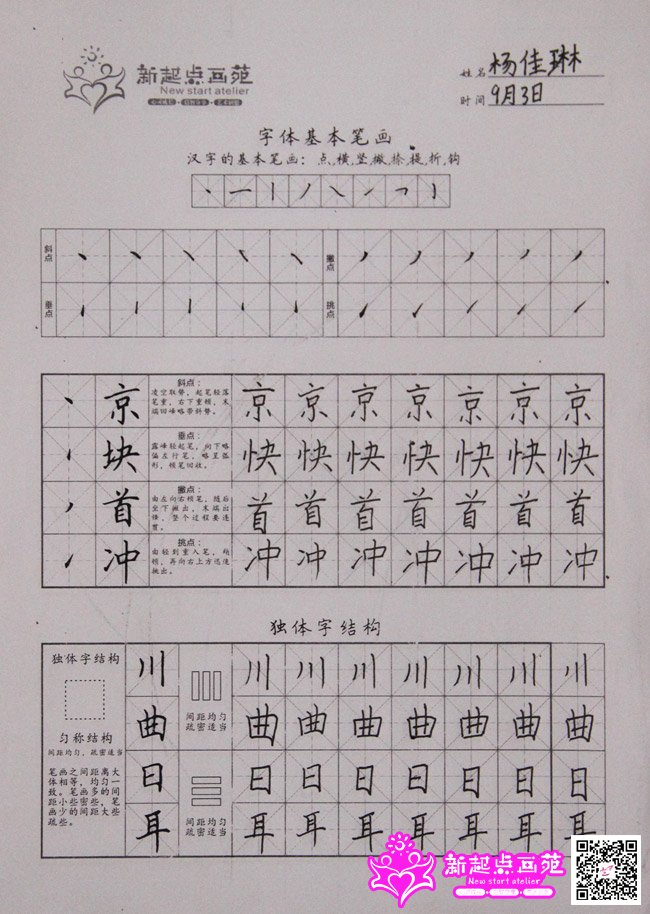 新起点画苑
New start atelier
姓名 杨佳琳
时间 9月3日
字体基本笔画
汉字的基本笔画：点,横,竖,撇,捺,提,折,钩
斜点
撇点
垂点
挑点
京 斜点： 京 京 京 京 京 京 京
凌空取势，起笔轻落
笔重，右下重顿，末
端回峰略带斜势。
块 垂点： 快 快 快 快 快 快 快
露峰轻起笔，向下略
偏左行笔，略呈弧
形，顿笔回收。
首 撇点： 首 首 首 首 首 首 首
由左向右顿笔，随后
坐下撇出，末端出
锋，整个过程要连
贯。
冲 挑点： 冲 冲 冲 冲 冲 冲 冲
由轻到重入笔，稍
顿，再向右上方迅速
挑出。
独体字结构
独体字结构
匀称结构
间距均匀，疏密适当
笔画之间距离大
体相等，均匀一
致。笔画多的间
距小些密些，笔
画少的间距大些
疏些。
川 川 川 川 川 川 川 川
间距均匀
疏密适当
曲 曲 曲 曲 曲 曲 曲 曲
日 日 日 日 日 日 日 日
间距均匀
疏密适当
耳 耳 耳 耳 耳 耳 耳 耳
新起点画苑
New start atelier